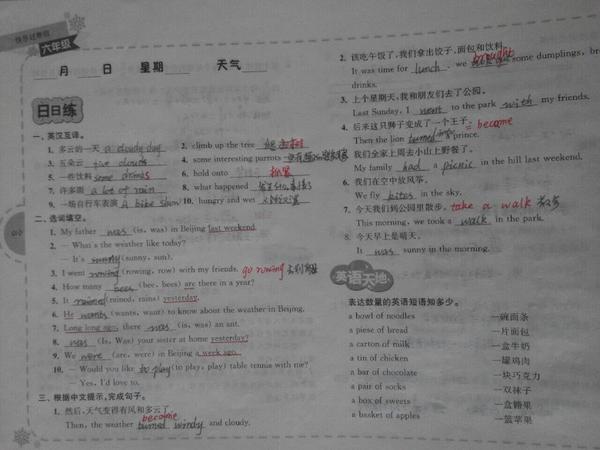 快乐过寒假
六年级
月 日 星期 天气
日日练
一、英汉互译。
1. 多云的一天 a cloudy day
2. climb up the tree 爬上树
3. 五朵云 five clouds
4. some interesting parrots
5. 一些饮料 some drinks
6. hold onto 抓紧
7. 许多雨 a lot of rain
8. what happened
9. 一场自行车表演 a bike show
10. hungry and wet 又饿又湿
二、选词填空。
1. My father was (is, was) in Beijing last weekend.
2. — What's the weather like today?
— It's sunny (sunny, sun).
3. I went rowing (rowing, row) with my friends. go rowing 去划船
4. How many bees (bee, bees) are there in a year?
5. It rained (rained, rains) yesterday.
6. He wants (wants, want) to know about the weather in Beijing.
7. Long long ago, there was (is, was) an ant.
8. Was (Is, Was) your sister at home yesterday?
9. We were (are, were) in Beijing a week ago.
10. — Would you like to play (to play, play) table tennis with me?
— Yes, I'd love to.
三、根据中文提示，完成句子。
1. 然后，天气变得有风和多云了。
become
Then, the weather turned windy and cloudy.
2. 该吃午饭了，我们拿出饺子，面包和饮料。
brought
It was time for lunch, we some dumplings, bread
drinks.
3. 上个星期天，我和朋友们去了公园。
Last Sunday, I went to the park with my friends.
4. 后来这只狮子变成了一个王子。 = become
Then the lion turned into prince.
5. 我们全家上周去小山上野餐了。
My family had a picnic in the hill last weekend.
6. 我们在空中放风筝。
We fly kites in the sky.
7. 今天我们到公园里散步。 take a walk 散步
This morning, we took a walk in the park.
8. 今天早上是晴天。
It was sunny in the morning.
英语天地
表达数量的英语短语知多少。
a bowl of noodles 一碗面条
a piese of bread 一片面包
a carton of milk 一盒牛奶
a tin of chicken 一罐鸡肉
a bar of chocolate 一块巧克力
a pair of socks 一双袜子
a box of sweets 一盒糖果
a basket of apples 一篮苹果